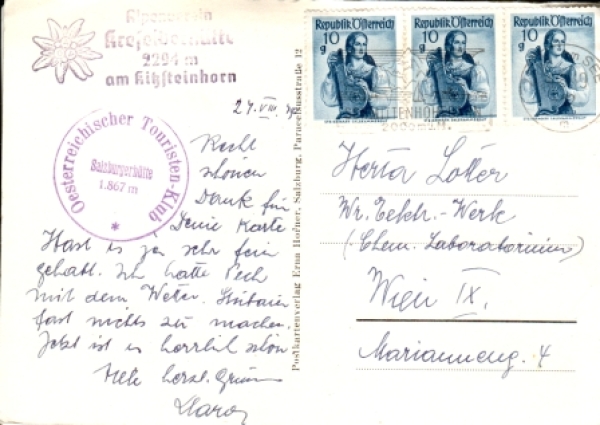 Alpenverein
Krefelderhütte
2294 m
am Kitzsteinhorn
Oesterreichischer Touristen-Klub
Salzburgerhütte
1.867 m
*
24. VIII.
Recht
schönen
Dank für
Deine Karte.
Hast es ja sehr fein
gehabt. Ich hatte Pech
mit dem Wetter.
fast nichts zu machen.
Jetzt ist es herrlich schön
herzl. Grüsse
Postkartenverlag Erna Hofner, Salzburg, Paracelsusstraße 12
Republik Österreich
10
g
Republik Österreich
10
g
Republik Österreich
10
g
SEE
Herta Lotter
Wr. Elektr.-Werk
(Chem. Laboratorium)
Wien IX.
Marianneng. 4